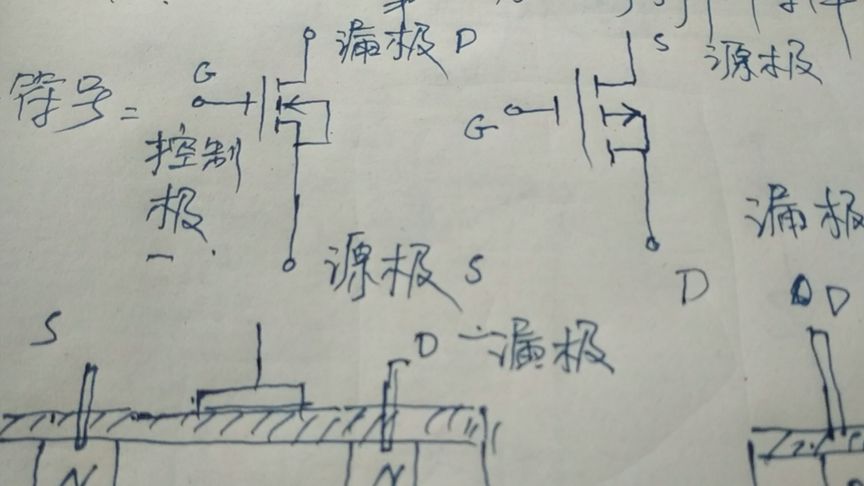 漏极 D
S
源极
G
符号=
控制
极
G
源极 S
D
漏极
D
S
D 漏极
N
N